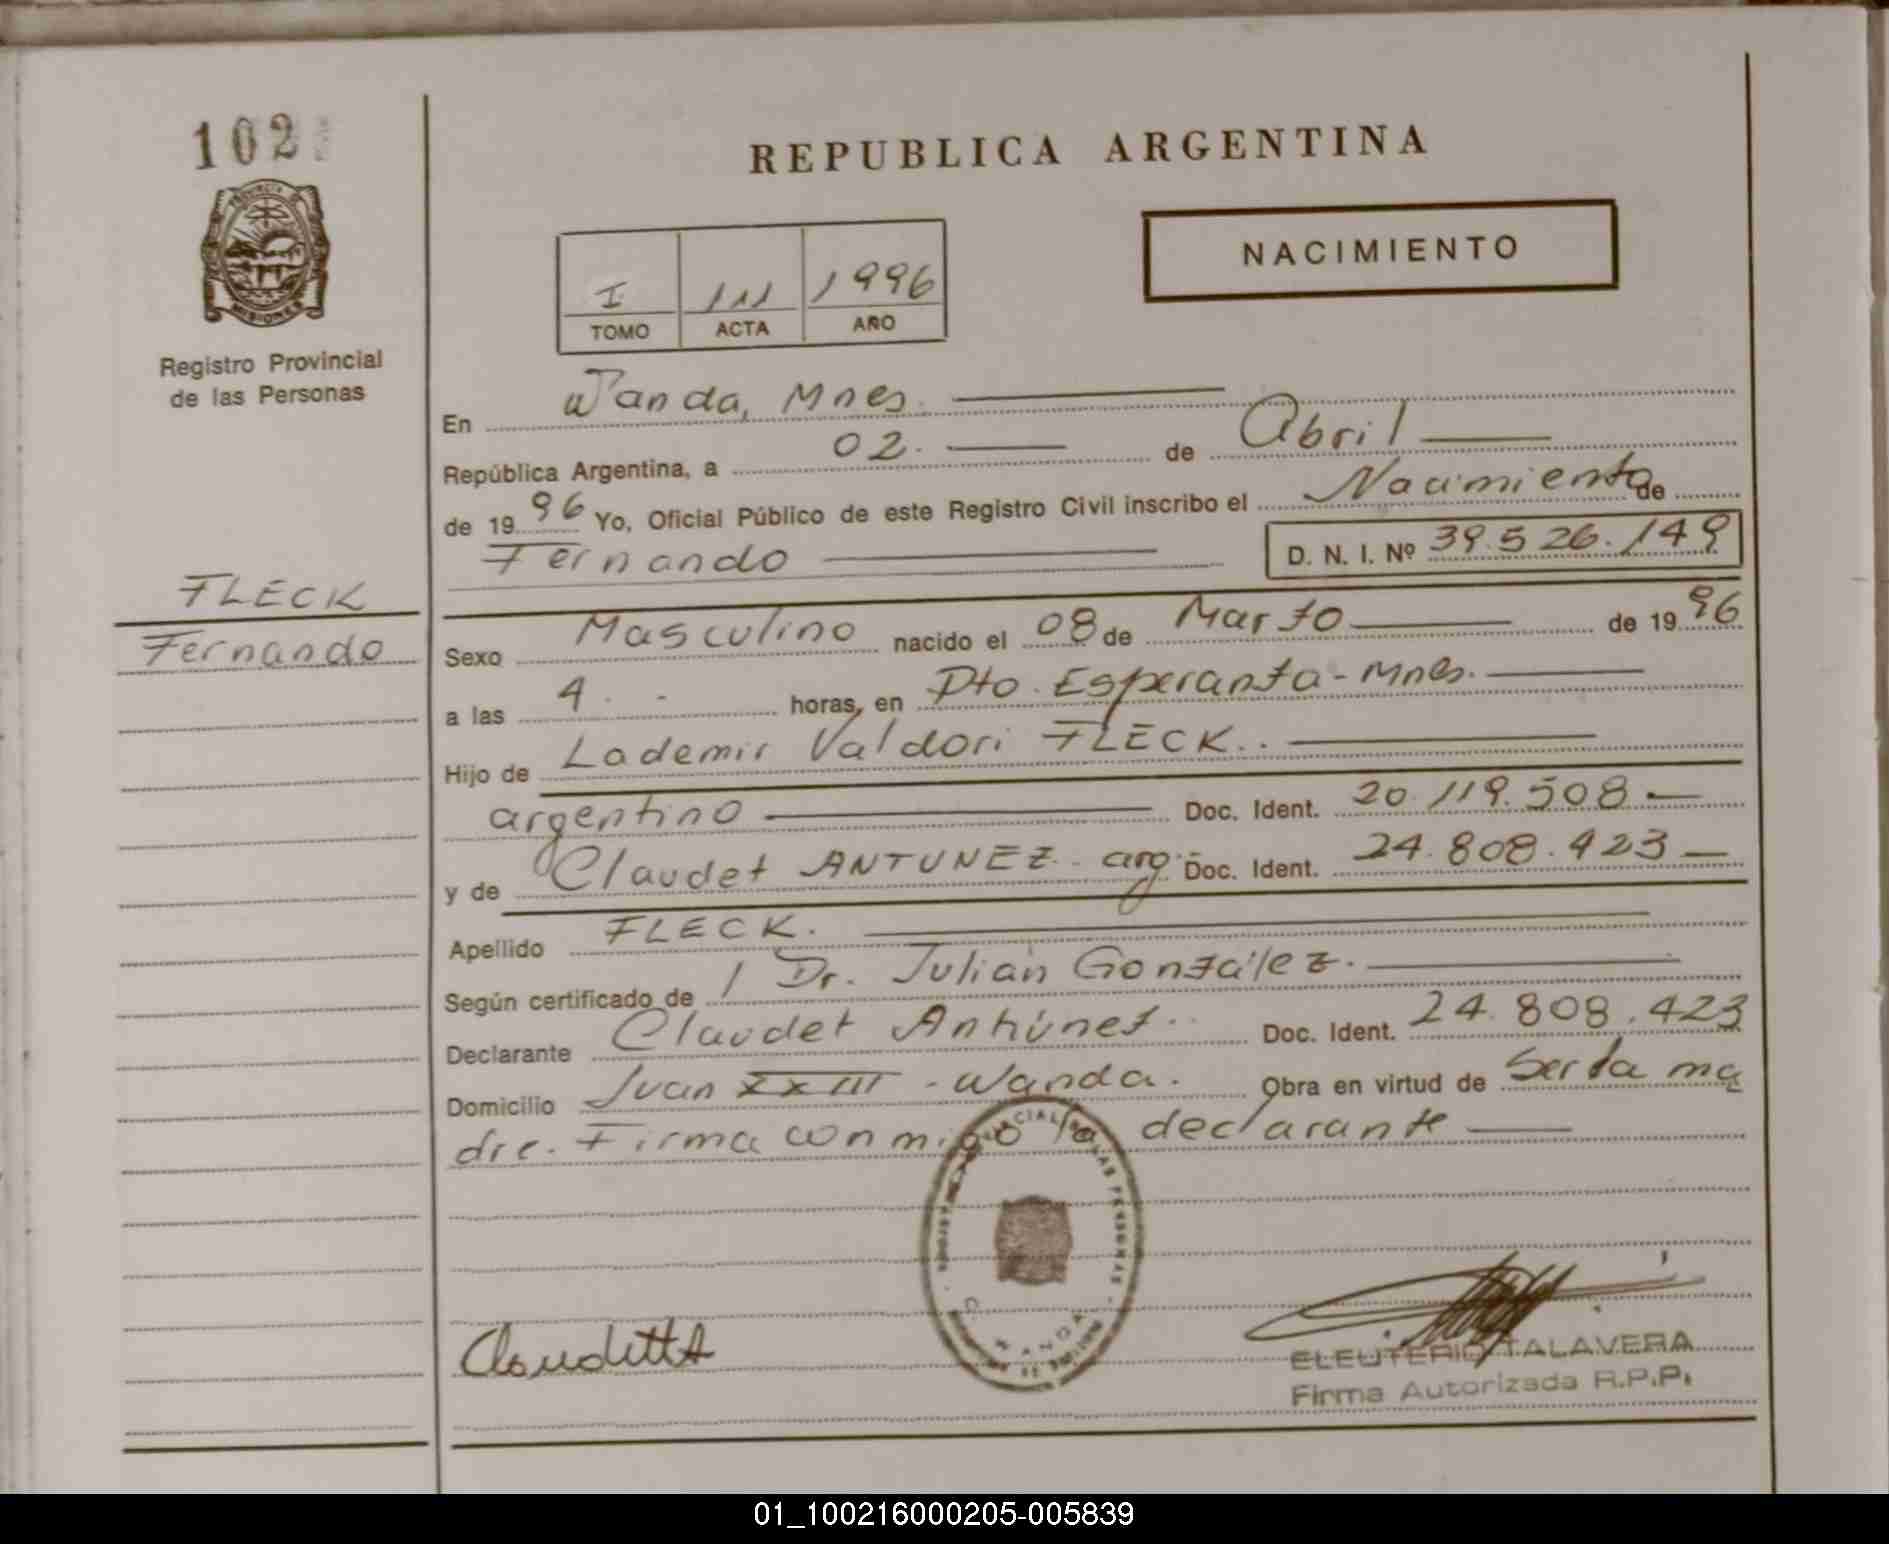 102
PROVINCIA DE
MISIONES
Registro Provincial
de las Personas
FLECK
Fernando
REPUBLICA ARGENTINA
NACIMIENTO
I 111 1996
TOMO ACTA AÑO
En Wanda, Mnes.
República Argentina, a 02. de Abril
de 1996 Yo, Oficial Público de este Registro Civil inscribo el Nacimiento de
Fernando D. N. I. Nº 39.526.149
Sexo Masculino nacido el 08 de Marzo de 1996
a las 4. - horas, en Pto. Esperanza - Mnes.
Hijo de Lademir Valdori FLECK.
argentino Doc. Ident. 20.119.508
y de Claudet ANTUNEZ - arg. Doc. Ident. 24.808.423
Apellido FLECK.
Según certificado de Dr. Julián González.
Declarante Claudet Antúnez. Doc. Ident. 24.808.423
Domicilio Juan XXIII - Wanda. Obra en virtud de Ser la ma
dre. Firma conmigo la declarante
WANDA
ELEUTERIO TALAVERA
Firma Autorizada R.P.P.
01_100216000205-005839